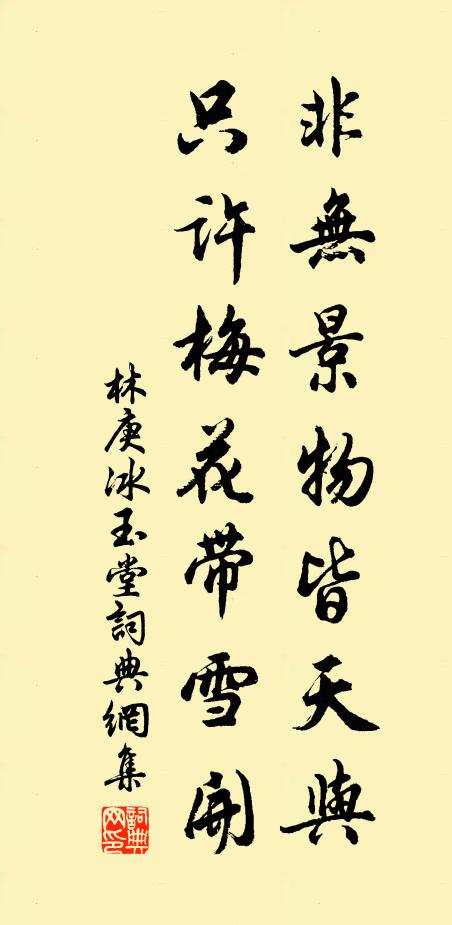 非無景物皆天與
只許梅花帶雪開
林庚冰玉堂詞典網集
詞典網印